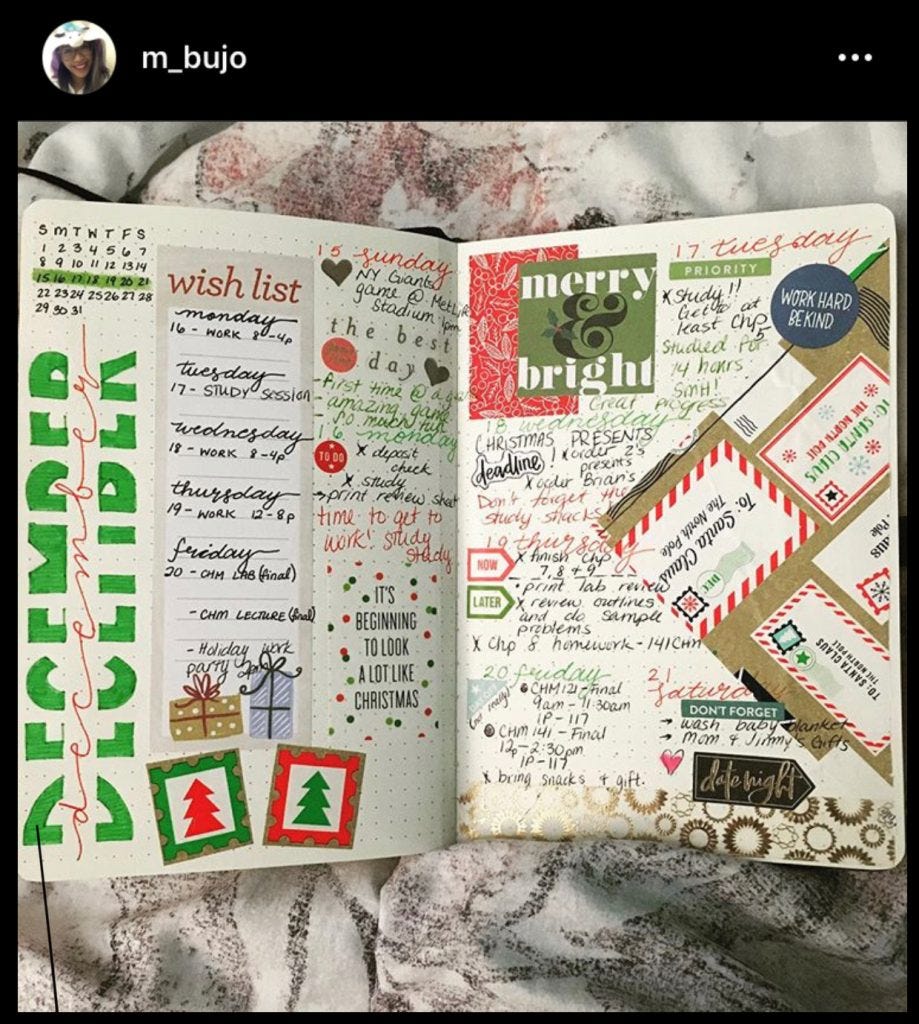 m_bujo
S M T W T F S
1 2 3 4 5 6 7
8 9 10 11 12 13 14
15 16 17 18 19 20 21
22 23 24 25 26 27 28
29 30 31
DECEMBER
december
wish list
monday
16 - WORK 8-4p
tuesday
17 - STUDY SESSION
wednesday
18 - WORK 8-4p
thursday
19 - WORK 12-8p
friday
20 - CHM LAB (final)
- CHM LECTURE (final)
- Holiday work
party
15 sunday
NY Giants
game @ MetLife
Stadium 1pm
the best
day
- first time @ a
- amazing game
- so much fun
16 monday
TO DO
x deposit
check
x study
→ print review
time to get to
work! study
study
IT'S
BEGINNING
TO LOOK
A LOT LIKE
CHRISTMAS
merry
&
bright
17 tuesday
PRIORITY
x Study!!
Get to at
least Chp
5
Studied for
14 hours
SMH!
Great progress
WORK HARD,
BE KIND
18 wednesday
CHRISTMAS PRESENTS
deadline! x order 2's
presents
x order Brian's
Don't forget the
study snacks!
19 thursday
NOW
x finish Chp
7, 8 + 9
• print Lab review
LATER
x review outlines
and do sample
problems
x Chp 8 homework - 141 CHM
20 friday
(no really!)
CHM 121 - Final
9am - 11:30am
IP-117
CHM 141 - Final
12p - 2:30pm
IP-117
x bring snacks & gift.
21
saturday
DON'T FORGET
→ wash baby blanket
→ Mom & Jimmy's Gifts
date night
TO: SANTA CLAUS
THE NORTH POLE
To: Santa Claus
The North Pole
DEC
aus
Pole
TO: SANTA CLAUS
THE NORTH POLE